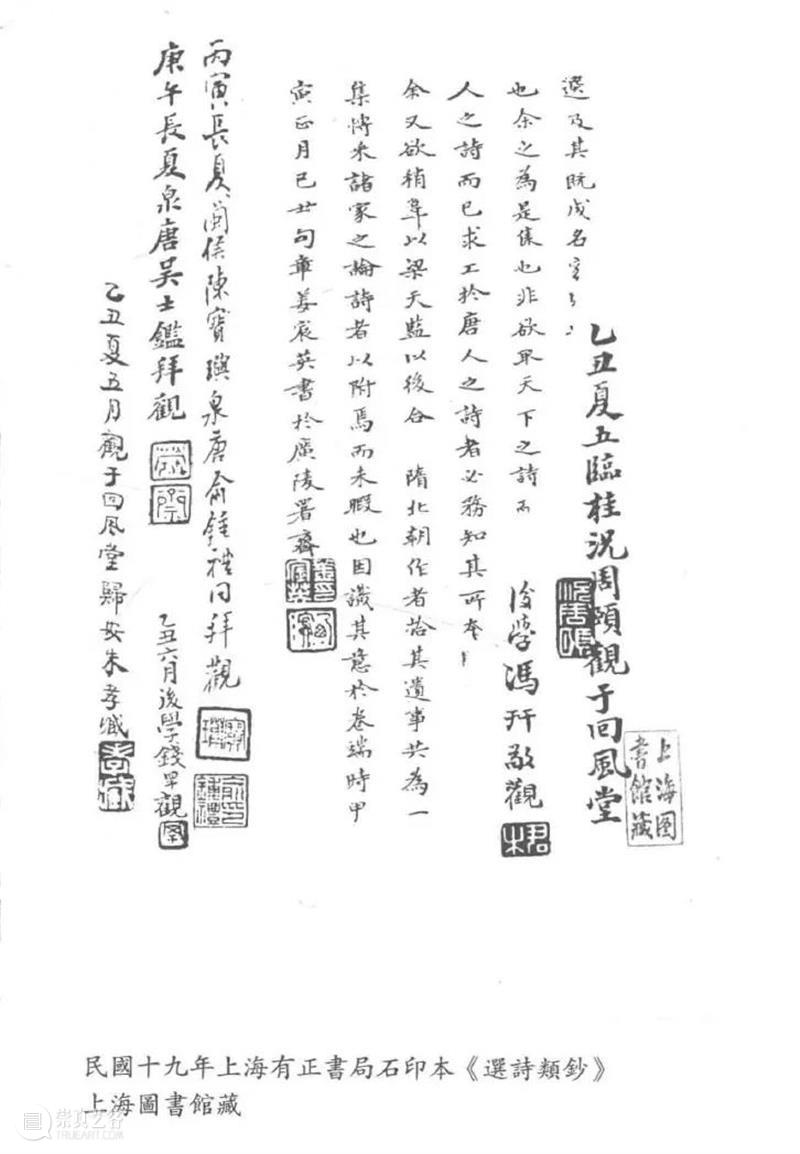 乙丑夏五臨桂況周頤觀于回風堂
選及其既成名
後學馮幵敬觀
也余之為是集也非欲取天下之詩而
人之詩而已求工於唐人之詩者必務知其所本
余又欲稍準以梁天監以後合 隋北朝作者拾其遺事共為一
集愽采諸家之論詩者以附焉而未暇也因識其意於卷端時甲
寅正月已廿句章姜宸英書於廣陵署齋
丙寅長夏閩侯陳寶璵泉唐俞鍾禮同拜觀
庚午長夏泉唐吳士鑑拜觀
乙丑六月後學錢罕觀
乙丑夏五月觀于回風堂歸安朱孝臧
上海图
書館藏
民國十九年上海有正書局石印本《選詩類鈔》
上海圖書館藏
崇真艺客
TRUEART.COM